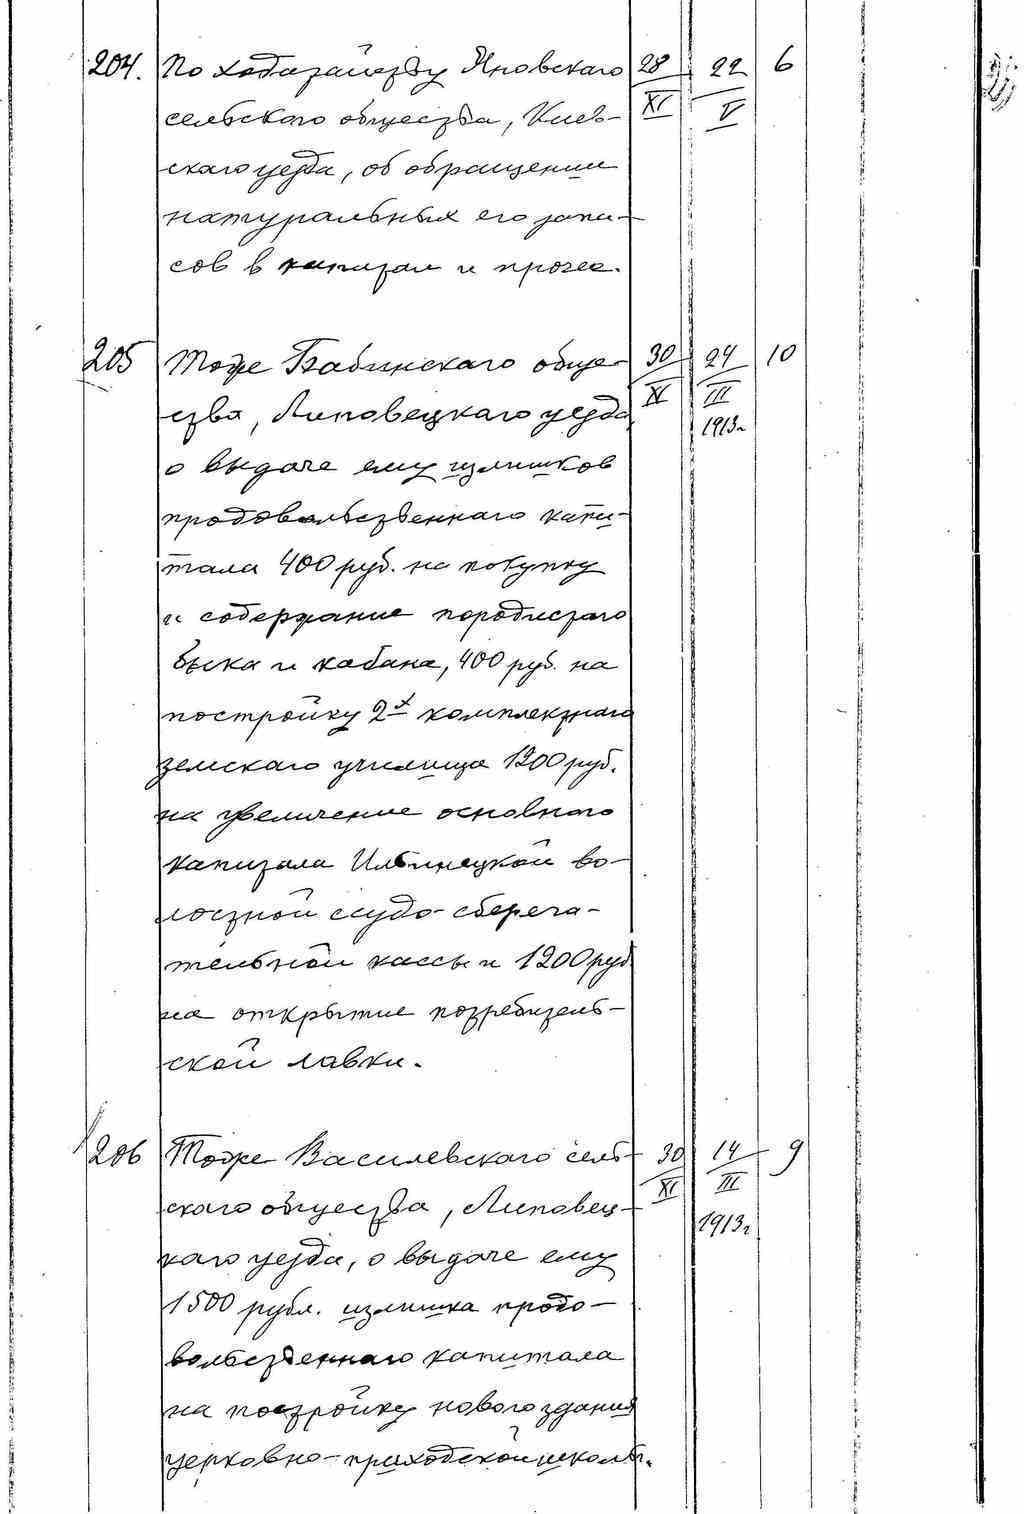 204. По ходатайству Яновского 28/XI 22/V 6
сельского общества, Киев-
ского уезда, об обращении
натуральных его запа-
сов в капитал и прочее.
205 Тоже Бабинского обще- 30/XI 24/III 1913г 10
ства, Липовецкого уезда,
о выдаче ему излишков
продовольственного капи-
тала 400 руб. на покупку
и содержание породистого
быка и кабана, 400 руб. на
постройку 2х комплектного
земского училища 1200 руб.
на увеличение основного
капитала Ильинецкой во-
лостной ссудо-сберега-
тельной кассы и 1200 руб
на открытие потребитель-
ской лавки.
206 Тоже Василевского сель- 30/XI 14/III 1913г 9
ского общества, Липовец-
кого уезда, о выдаче ему
1500 рубл. излишка продо-
вольственного капитала
на постройку нового здания
церковно-приходской школы.